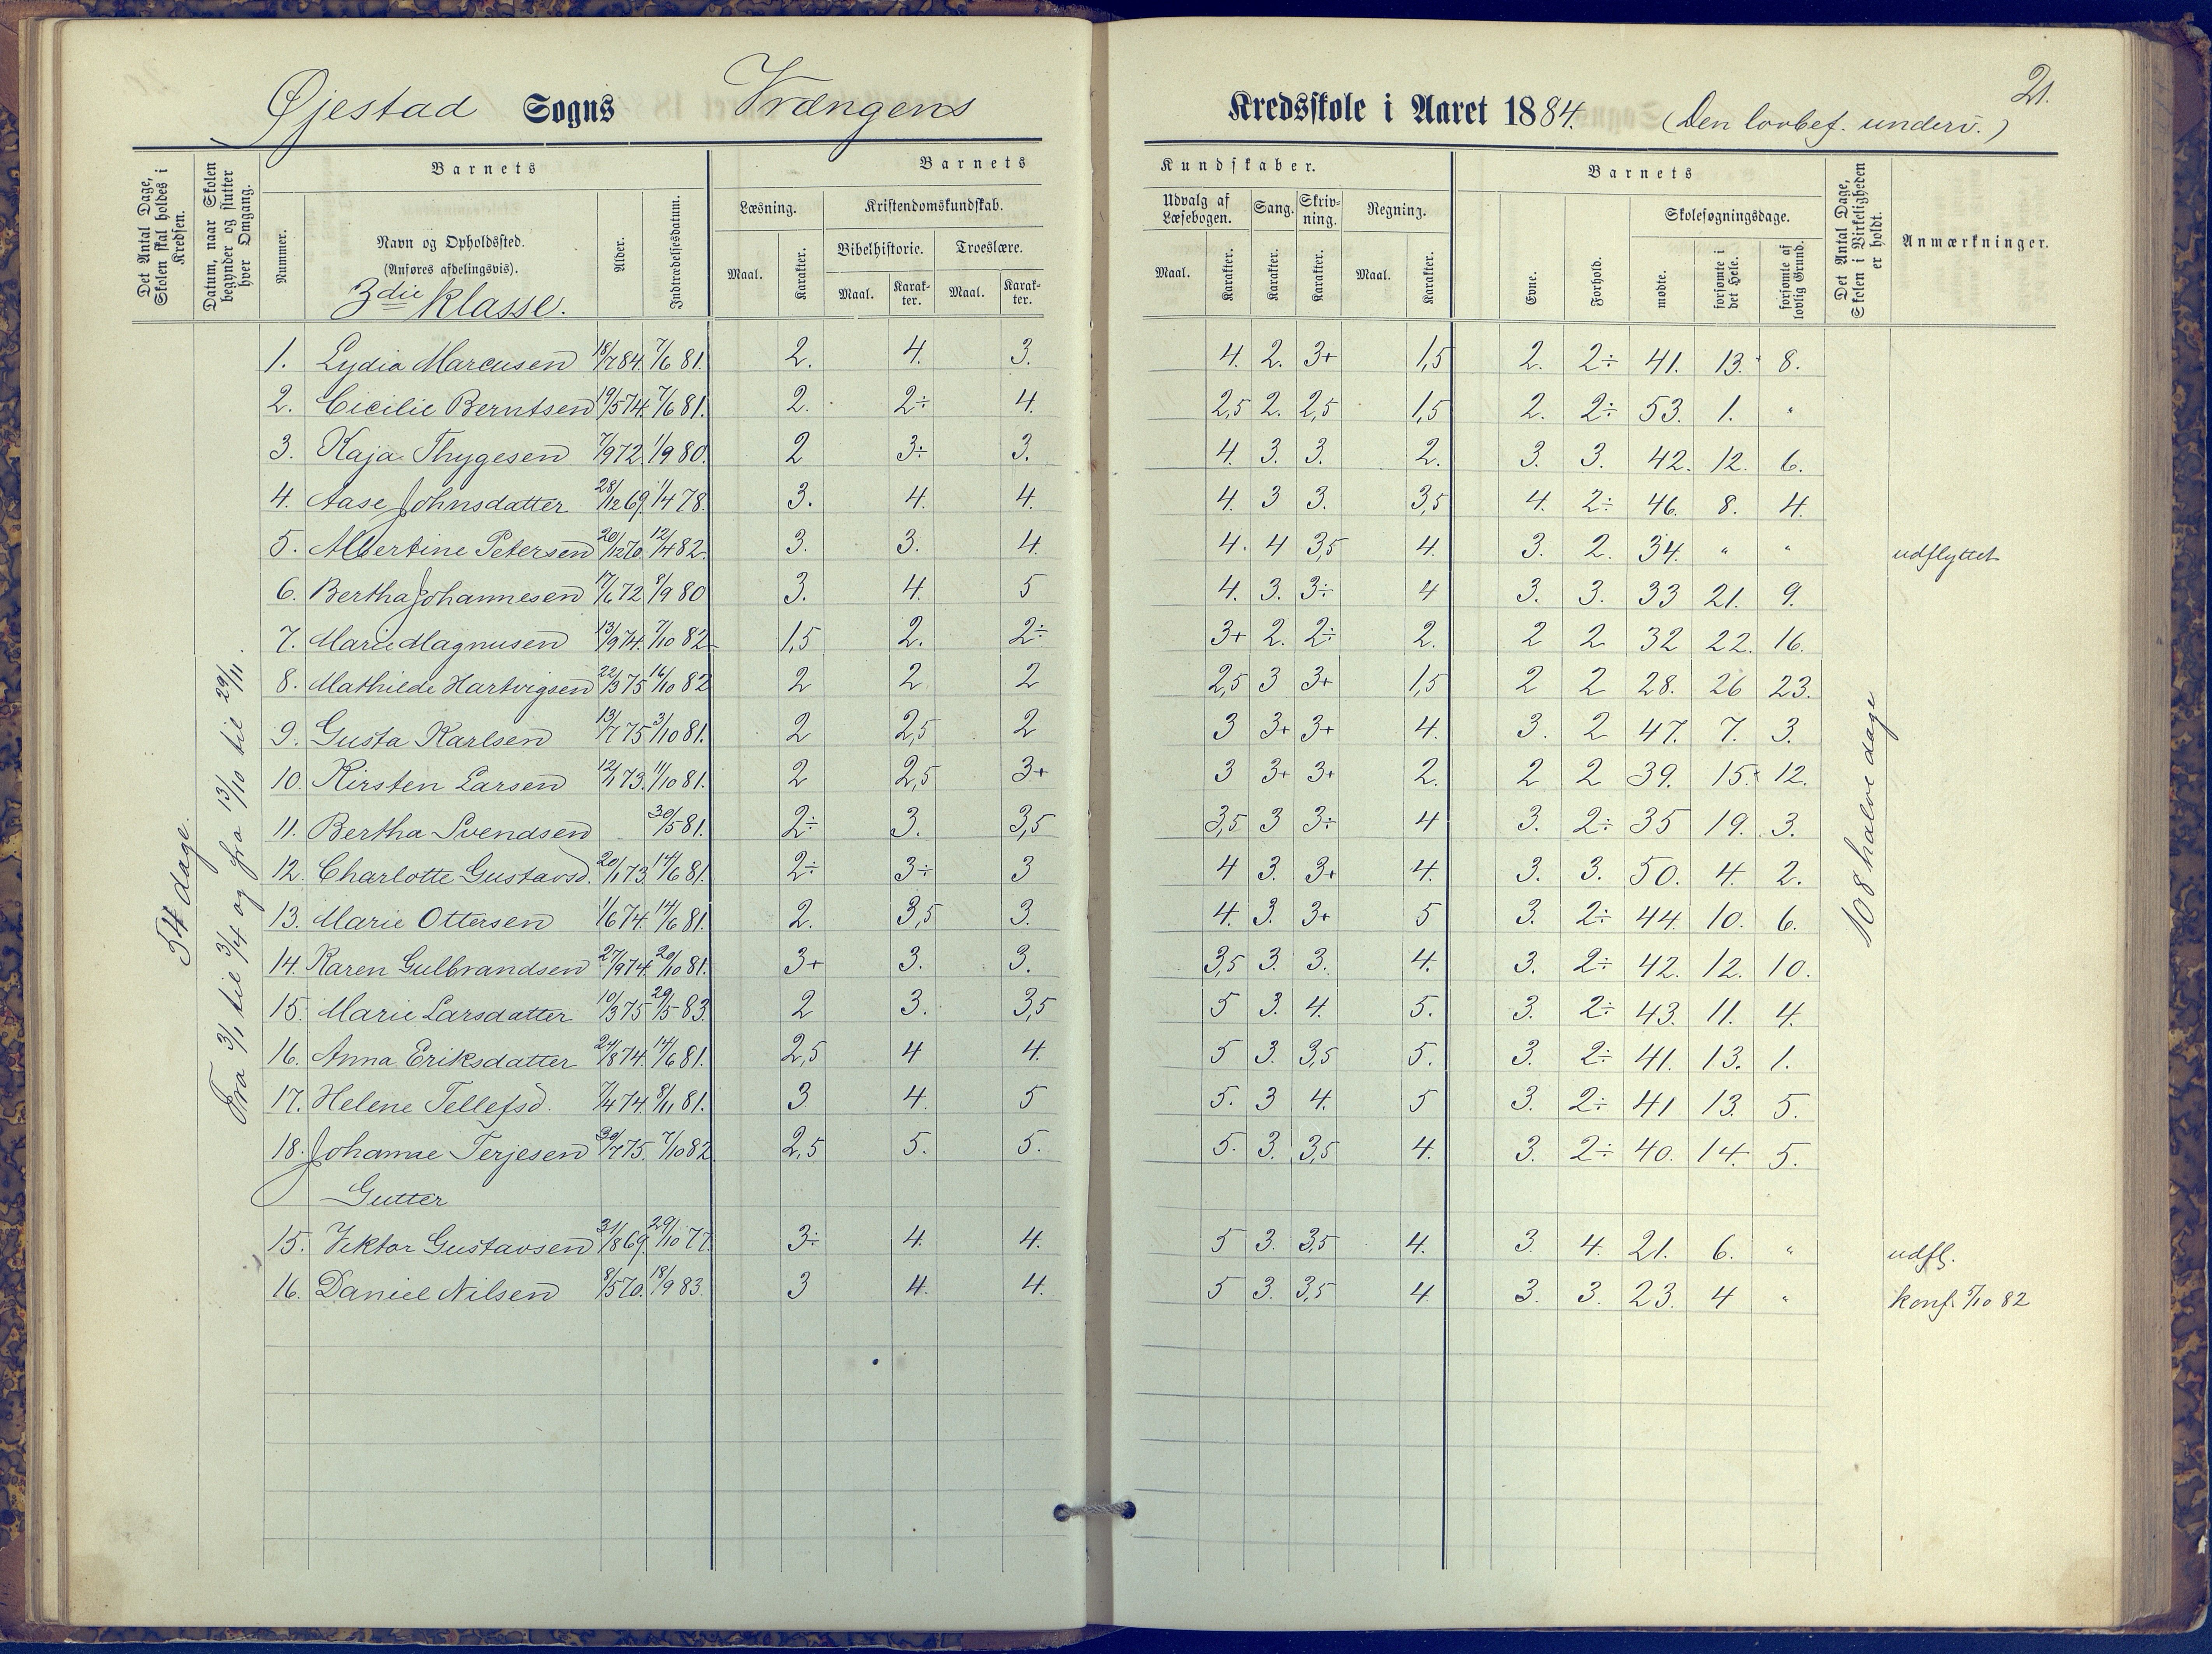 Øjestad Sogns Vrængens Kredsskole i Aaret 1884. (Den lovbef. underv.) 21.
Det Antal Dage, Skolen skal holdes i Kredsen.
Datum, naar Skolen begynder og slutter hver Omgang.
Barnets
Nummer.
Navn og Opholdssted.
(Anføres afdelingsvis).
3die Klasse.
Alder.
Indtrædelsesdatum.
Barnets Kundskaber.
Læsning. Kristendomskundskab. Udvalg af Læsebogen. Sang. Skrivning. Regning.
Bibelhistorie. Troeslære.
Maal. Karakter. Maal. Karakter. Maal. Karakter. Maal. Karakter. Karakter. Karakter. Maal. Karakter.
Barnets
Evne. Forhold. Skolesøgningsdage.
mødte. forsømte i det Hele. forsømte af lovlig Grund.
Det Antal Dage, Skolen i Virkeligheden er holdt.
Anmærkninger.
54 dage.
Fra 3/1 til 3/4 og fra 13/10 til 29/11.
1. Lydia Marcusen 18/7 84. 7/6 81. 2. 4. 3. 4. 2. 3+ 1,5 2. 2÷ 41. 13. 8.
2. Cicilie Berntsen 19/5 74. 7/6 81. 2. 2÷ 4. 2,5 2. 2,5 1,5 2. 2÷ 53. 1. "
3. Kaja Thygesen 7/9 72. 1/9 80. 2 3÷ 3. 4. 3. 3. 2. 3. 3. 42. 12. 6.
4. Aase Johnsdatter 28/12 69. 1/4 78. 3. 4. 4. 4. 3 3. 3,5 4. 2÷ 46. 8. 4.
5. Albertine Petersen 20/12 70. 12/4 82. 3. 3. 4. 4. 4 3,5 4. 3. 2. 34. " " udflyttet
6. Bertha Johannesen 17/6 72 8/9 80 3. 4. 5 4. 3. 3÷ 4 3. 3. 33 21. 9.
7. Marie Magnusen 13/9 74. 7/10 82 1,5 2. 2÷ 3+ 2. 2÷ 2. 2 2 32 22. 16.
8. Mathilde Hartvigsen 22/3 75 16/10 82 2 2 2 2,5 3 3+ 1,5 2 2 28. 26 23.
9. Gusta Karlsen 13/7 75 3/10 81. 2 2,5 2 3 3+ 3+ 4. 3. 2 47. 7. 3.
10. Kirsten Larsen 12/1 73. 11/10 81. 2 2,5 3+ 3 3+ 3+ 2. 2 2 39. 15. 12.
11. Bertha Svendsen 30/5 81. 2÷ 3. 3,5 3,5 3 3÷ 4 3. 2÷ 35 19. 3.
12. Charlotte Gustavsd. 20/1 73. 14/6 81. 2÷ 3÷ 3 4 3. 3+ 4. 3. 3. 50. 4. 2.
13. Marie Ottersen 1/6 74. 14/6 81. 2. 3,5 3. 4. 3. 3+ 5 3. 2÷ 44. 10. 6.
14. Karen Gulbrandsen 27/9 74. 20/10 81. 3+ 3. 3. 3,5 3. 3. 4. 3. 2÷ 42. 12. 10.
15. Marie Larsdatter 10/3 75 29/5 83. 2 3. 3,5 5 3. 4. 5. 3. 2÷ 43. 11. 4.
16. Anna Eriksdatter 24/8 74. 14/6 81. 2,5 4 4. 5 3. 3,5 5. 3. 2÷ 41. 13. 1.
17. Helene Tellefsd. 7/4 74. 8/11 81. 3 4. 5 5. 3 4. 5 3. 2÷ 41 13. 5.
18. Johanne Terjesen 30/7 75. 7/10 82 2,5 5. 5. 5. 3. 3,5 4. 3. 2÷ 40. 14. 5.
Gutter
15. Viktor Gustavsen 31/8 69. 29/10 77. 3÷ 4. 4. 5 3. 3,5 4. 3. 4. 21. 6. " udfl.
16. Daniel Nilsen 8/5 70. 18/9 83. 3 4. 4. 5 3. 3,5 4 3. 3. 23. 4 " konf. 5/10 82
108 halve dage